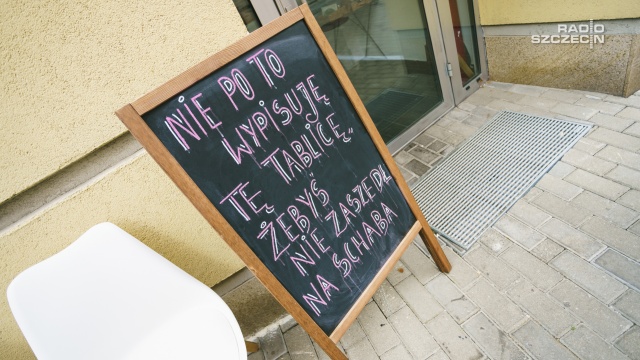 RADIO
SZCZECIN
NIE PO TO
WYPISUJĘ
TĘ TABLICĘ„
ŻEBYŚ
NIE ZASZEDŁ
NA SCHABA